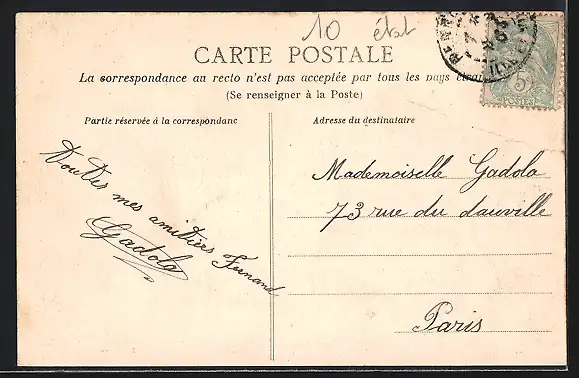 10 état
CARTE POSTALE
La correspondance au recto n'est pas acceptée par tous les pays
(Se renseigner à la Poste)
Partie réservée à la correspondanc
Adresse du destinataire
mes amitiers Fernand
Gadola
Mademoiselle Gadola
73 rue du dauville
Paris
5c
POSTES